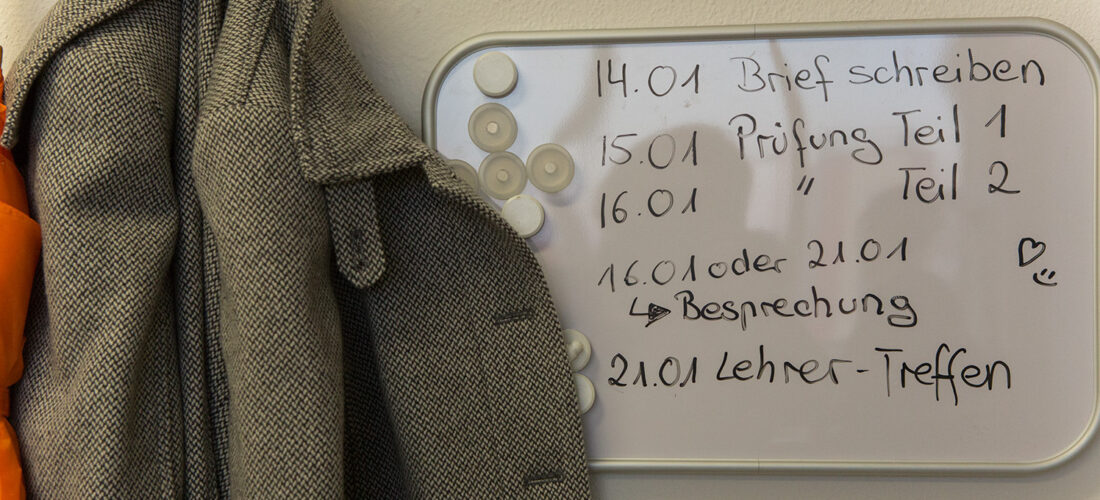 14.01 Brief schreiben
15.01 Prüfung Teil 1
16.01 " Teil 2
16.01 oder 21.01
↳ Besprechung
21.01 Lehrer-Treffen